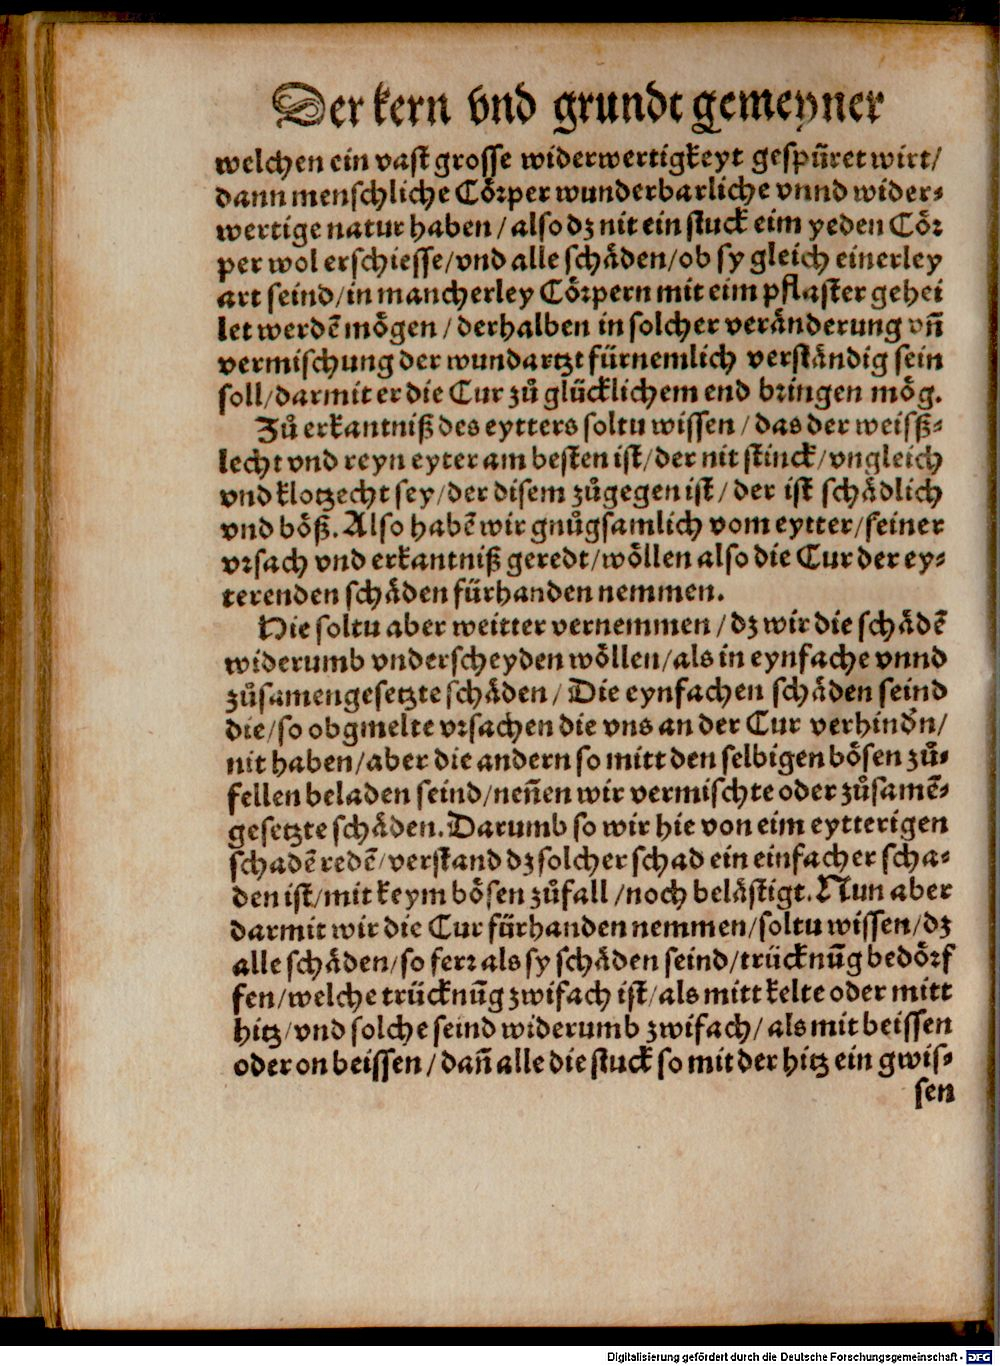 Der kern vnd grundt gemeyner
welchen ein vast grosse widerwertigkeyt gespüret wirt/
dann menschliche Cörper wunderbarliche vnnd wider-
wertige natur haben / also dz nit ein stuck eim yeden Cör
per wol erschiesse/vnd alle schäden/ob sy gleich einerley
art seind/in mancherley Cörpern mit eim pflaster gehei
let werdē mögen / derhalben in solcher veränderung vn̄
vermischung der wundartzt fürnemlich verständig sein
soll/darmit er die Cur zů glücklichem end bringen mög.
Zů erkantniß des eytters soltu wissen / das der weißß-
lecht vnd reyn eyter am besten ist/der nit stinck/vngleich
vnd klotzecht sey/der disem zůgegen ist/der ist schädlich
vnd böß. Also habē wir gnůgsamlich vom eytter/seiner
vrsach vnd erkantniß geredt/wöllen also die Cur der ey-
terenden schäden fürhanden nemmen.
Hie soltu aber weitter vernemmen / dz wir die schädē
widerumb vnderscheyden wöllen/als in eynfache vnnd
zůsamengesetzte schäden / Die eynfachen schäden seind
die/so obgmelte vrsachen die vns an der Cur verhindn̄/
nit haben/aber die andern so mitt den selbigen bösen zů-
fellen beladen seind/nen̄en wir vermischte oder zůsamē-
gesetzte schäden. Darumb so wir hie von eim eytterigen
schadē redē/verstand dz solcher schad ein einfacher scha-
den ist/mit keym bösen zůfall /noch belästigt. Nun aber
darmit wir die Cur fürhanden nemmen/soltu wissen/dz
alle schäden/so ferr als sy schäden seind/trücknūg bedörf
fen/welche trücknūg zwifach ist/als mitt kelte oder mitt
hitz/vnd solche seind widerumb zwifach/als mit beissen
oder on beissen / dan̄ alle die stuck so mit der hitz ein gwis-
sen
Digitalisierung gefördert durch die Deutsche Forschungsgemeinschaft - DFG